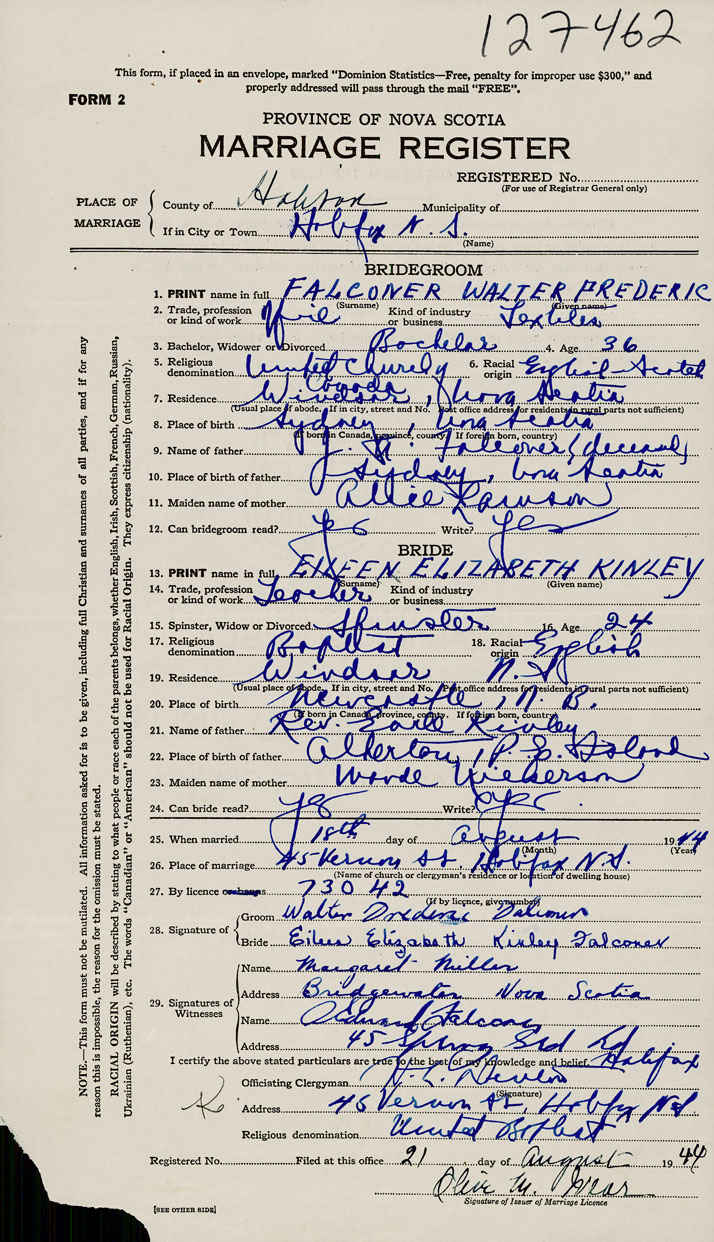 127462
This form, if placed in an envelope, marked “Dominion Statistics—Free, penalty for improper use $300,” and
properly addressed will pass through the mail “FREE”.
FORM 2
PROVINCE OF NOVA SCOTIA
MARRIAGE REGISTER
REGISTERED No.
(For use of Registrar General only)
PLACE OF MARRIAGE
County of Municipality of
If in City or Town Halifax N. S.
(Name)
BRIDEGROOM
1. PRINT name in full FALCONER WALTER FREDERIC
(Surname) (Given name)
2. Trade, profession or kind of work Kind of industry or business Textiles
3. Bachelor, Widower or Divorced Bachelor 4. Age 36
5. Religious denomination United Church Canada 6. Racial origin English-Scotch
7. Residence Windsor, Nova Scotia
(Usual place of abode. If in city, street and No. Post office address for residents in rural parts not sufficient)
8. Place of birth Sydney, Nova Scotia
(If born in Canada, province, county. If foreign born, country)
9. Name of father Falconer (deceased)
10. Place of father's birth Sydney, Nova Scotia
11. Maiden name of mother Allie Lawson
12. Can bridegroom read? yes Write? yes
BRIDE
13. PRINT name in full EILEEN ELIZABETH KINLEY
(Surname) (Given name)
14. Trade, profession or kind of work Teacher Kind of industry or business
15. Spinster, Widow or Divorced Spinster 16. Age 24
17. Religious denomination Baptist 18. Racial origin English
19. Residence Windsor N. S.
(Usual place of abode. If in city, street and No. Post office address for residents in rural parts not sufficient)
20. Place of birth Newcastle, N. B.
(If born in Canada, province, county. If foreign born, country)
21. Name of father Rev. Earle Kinley
22. Place of birth of father Alberton, P. E. Island
23. Maiden name of mother Nickerson
24. Can bride read? yes Write? yes
25. When married 18th day of August 1944
(Month) (Year)
26. Place of marriage 45 Vernon St., Halifax N.S.
(Name of church or clergyman's residence or location of dwelling house)
27. By licence or banns 73042
(If by licence, give number)
28. Signature of
Groom Walter Frederic Falconer
Bride Eileen Elizabeth Kinley Falconer
29. Signatures of Witnesses
Name Margaret Miller
Address Bridgewater Nova Scotia
Name Falconer
Address 45 Spring Gd Rd Halifax
I certify the above stated particulars are true to the best of my knowledge and belief.
Officiating Clergyman
(Signature)
Address 45 Vernon St., Halifax N.S.
Religious denomination United Baptist
Registered No. Filed at this office 21 day of August 1944
Olive M.
Signature of Issuer of Marriage Licence
[SEE OTHER SIDE]
NOTE.—This form must not be mutilated. All information asked for is to be given, including full Christian and surnames of all parties, and if for any
reason this is impossible, the reason for the omission must be stated.
RACIAL ORIGIN will be described by stating to what people or race each of the parents belongs, whether English, Irish, Scottish, French, German, Russian,
Ukrainian (Ruthenian), etc. The words “Canadian” or “American” should not be used for Racial Origin. They express citizenship (nationality).